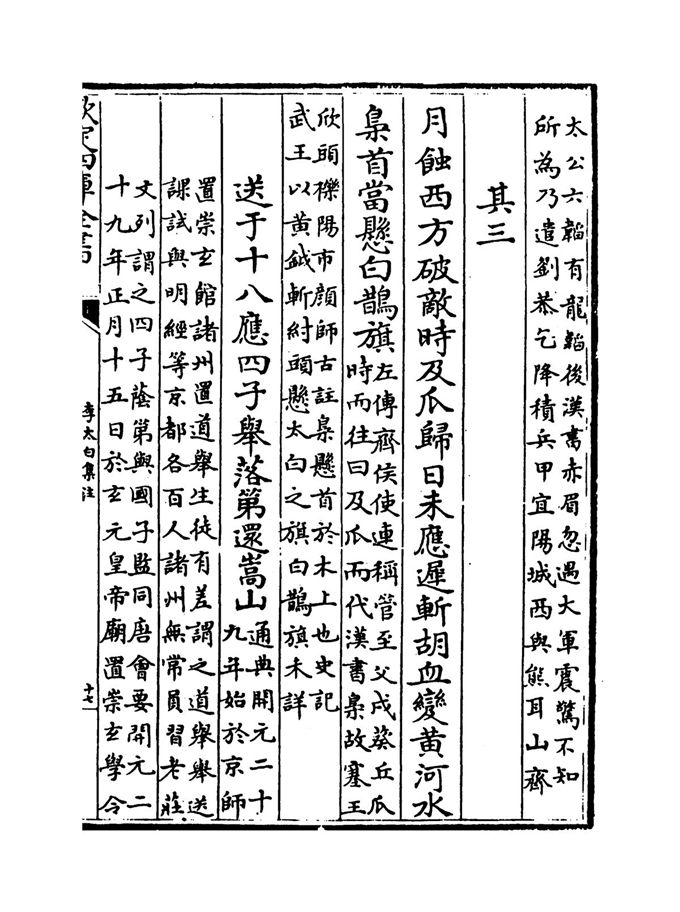 太公六韜有龍韜後漢書赤眉忽遇大軍震驚不知
所為乃遣劉恭乞降積兵甲宜陽城西與熊耳山齊
其三
月蝕西方破敵時及瓜歸日未應遲斬胡血變黄河水
梟首當懸白鵲旗
左傳齊侯使連稱管至父戍葵丘瓜
時而往曰及瓜而代漢書梟故塞王
欣頭櫟陽市顔師古註梟懸首於木上也史記
武王以黄鉞斬紂頭懸太白之旗白鵲旗未詳
送于十八應四子舉落第還嵩山
通典開元二十
九年始於京師
置崇玄館諸州置道舉生徒有差謂之道舉舉送
課試與明經等京都各百人諸州無常員習老莊
文列謂之四子蔭第與國子監同唐會要開元二
十九年正月十五日於玄元皇帝廟置崇玄學令
欽定四庫全書
李太白集注
十七